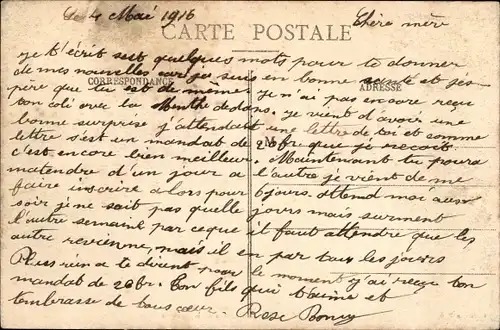 Le 4 Mai 1916
Chère mère
CARTE POSTALE
CORRESPONDANCE
ADRESSE
je t'écrit sest quelques mots pour te donner
de mes nouvelles car je suis en bonne santé et jés
père que tu est de même je n'ai pas encore reçu
ton coli avec la Menthe dedans. je vient d'avoir une
bonne surprise j'attendait une lettre de toi et comme
lettre s'est un mandat de 20 fr que je reçoit.
c'est encore bien meilleur. Maintenant tu poura
matendre d'un jour a l'autre je vient de me
faire inscrire alors pour 6 jours. attend moi aus
soir je ne sait pas quelle jours mais surment
l'autre semaine par ceque il faut attendre que les
autre revienne, mais il en par tous les jours
Plus rien a te dirent pour le moment j'ai reçu ton
mandat de 20 fr. Ton fils qui t'aime et
t'embrasse de tous cœur.